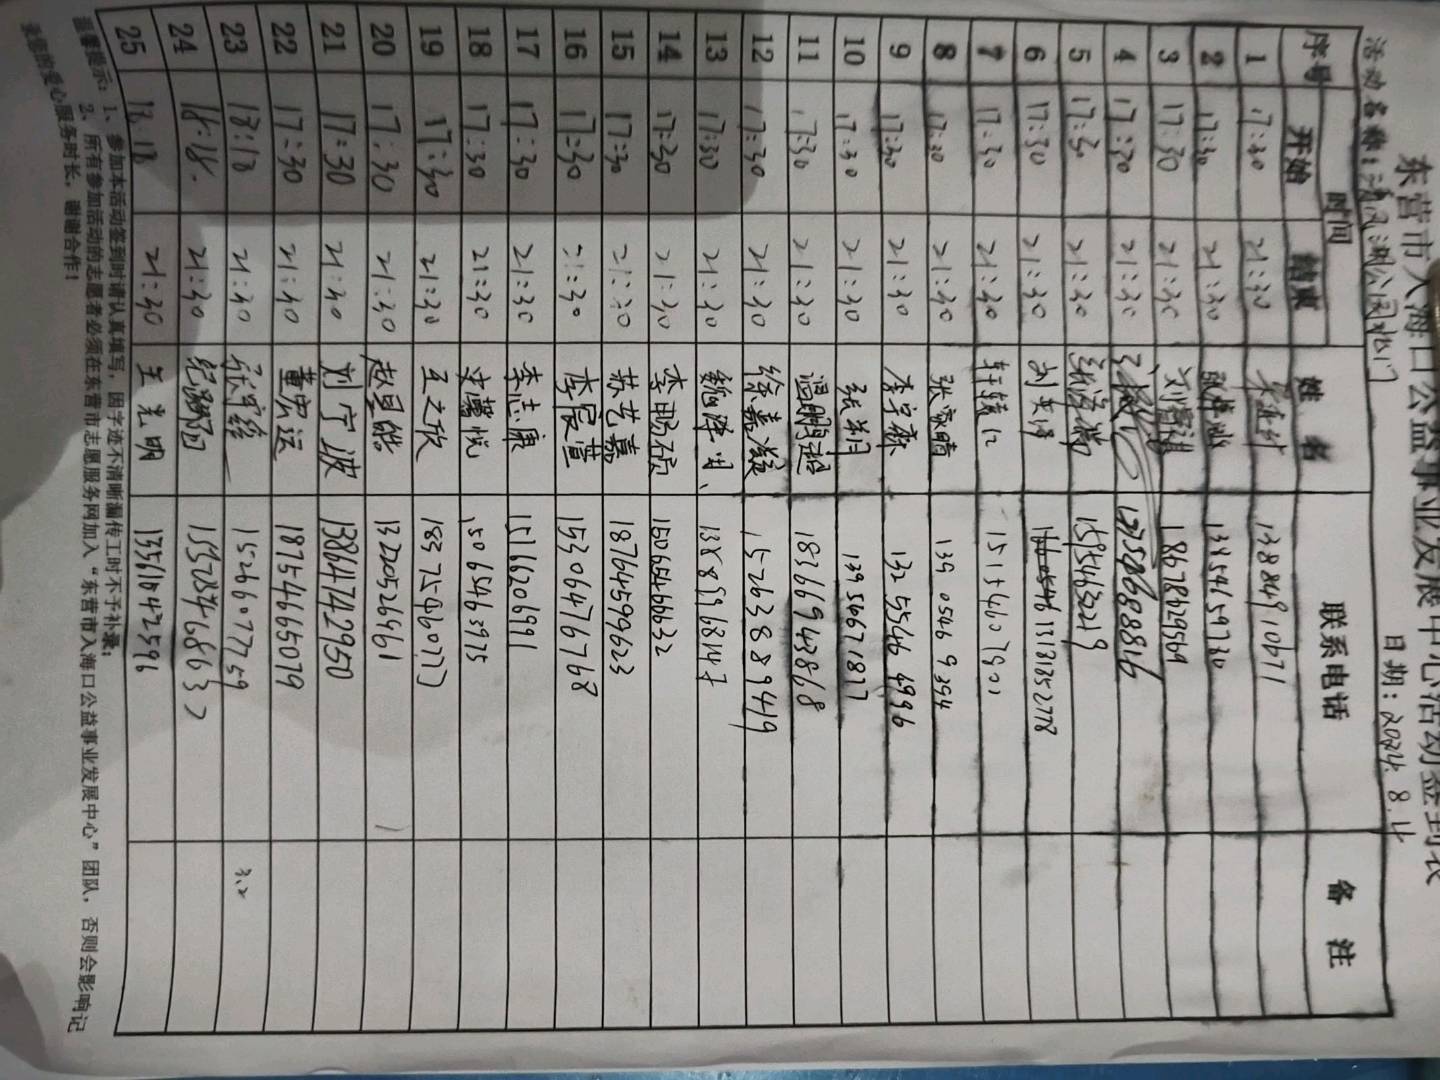 东营市入海口公益事业发展中心活动签到表
活动名称:清风湖公园松门 日期:2024.8.14
序号 时间 姓名 联系电话 备注
开始 结束
1 17:30 21:30 13884910671
2 17:30 21:30 13854659730
3 17:30 21:30 18678629569
4 17:30 21:30
5 17:30 21:30 15954632219
6 17:30 21:30 13181352778
7 17:30 21:30 15154607921
8 17:30 21:30 张家晴 139 0546 9394
9 17:30 21:30 132 5546 4996
10 17:30 21:30 张朔 13956671827
11 17:30 21:30 温鹏超 18366943868
12 17:30 21:30 徐嘉凝 15263889419
13 17:30 21:30 魏泽明 13889968147
14 17:30 21:30 李赐硕 15065466632
15 17:30 21:30 苏艺嘉 18764599623
16 17:30 21:30 李宸萱 15306476768
17 17:30 21:30 李志康 15166206991
18 17:30 21:30 李馨悦 15065463975
19 17:30 21:30 王之欣 18375960777
20 17:30 21:30 赵昱皓 13220526961
21 17:30 21:30 刘宁波 13864742950
22 17:30 21:30 董宏运 18754665079
23 18:18 21:30 15266077759 3.2
24 18:18. 21:30 15728468637
25 18.18 21:30 王光明 13561042596
温馨提示:1、参加本活动签到时请认真填写,因字迹不清晰漏传工时不予补录;
2、所有参加活动的志愿者必须在东营市志愿服务网加入“东营市入海口公益事业发展中心”团队,否则会影响记
录您的爱心服务时长,谢谢合作!